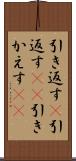 引き返す 引
返す 引き
かえす